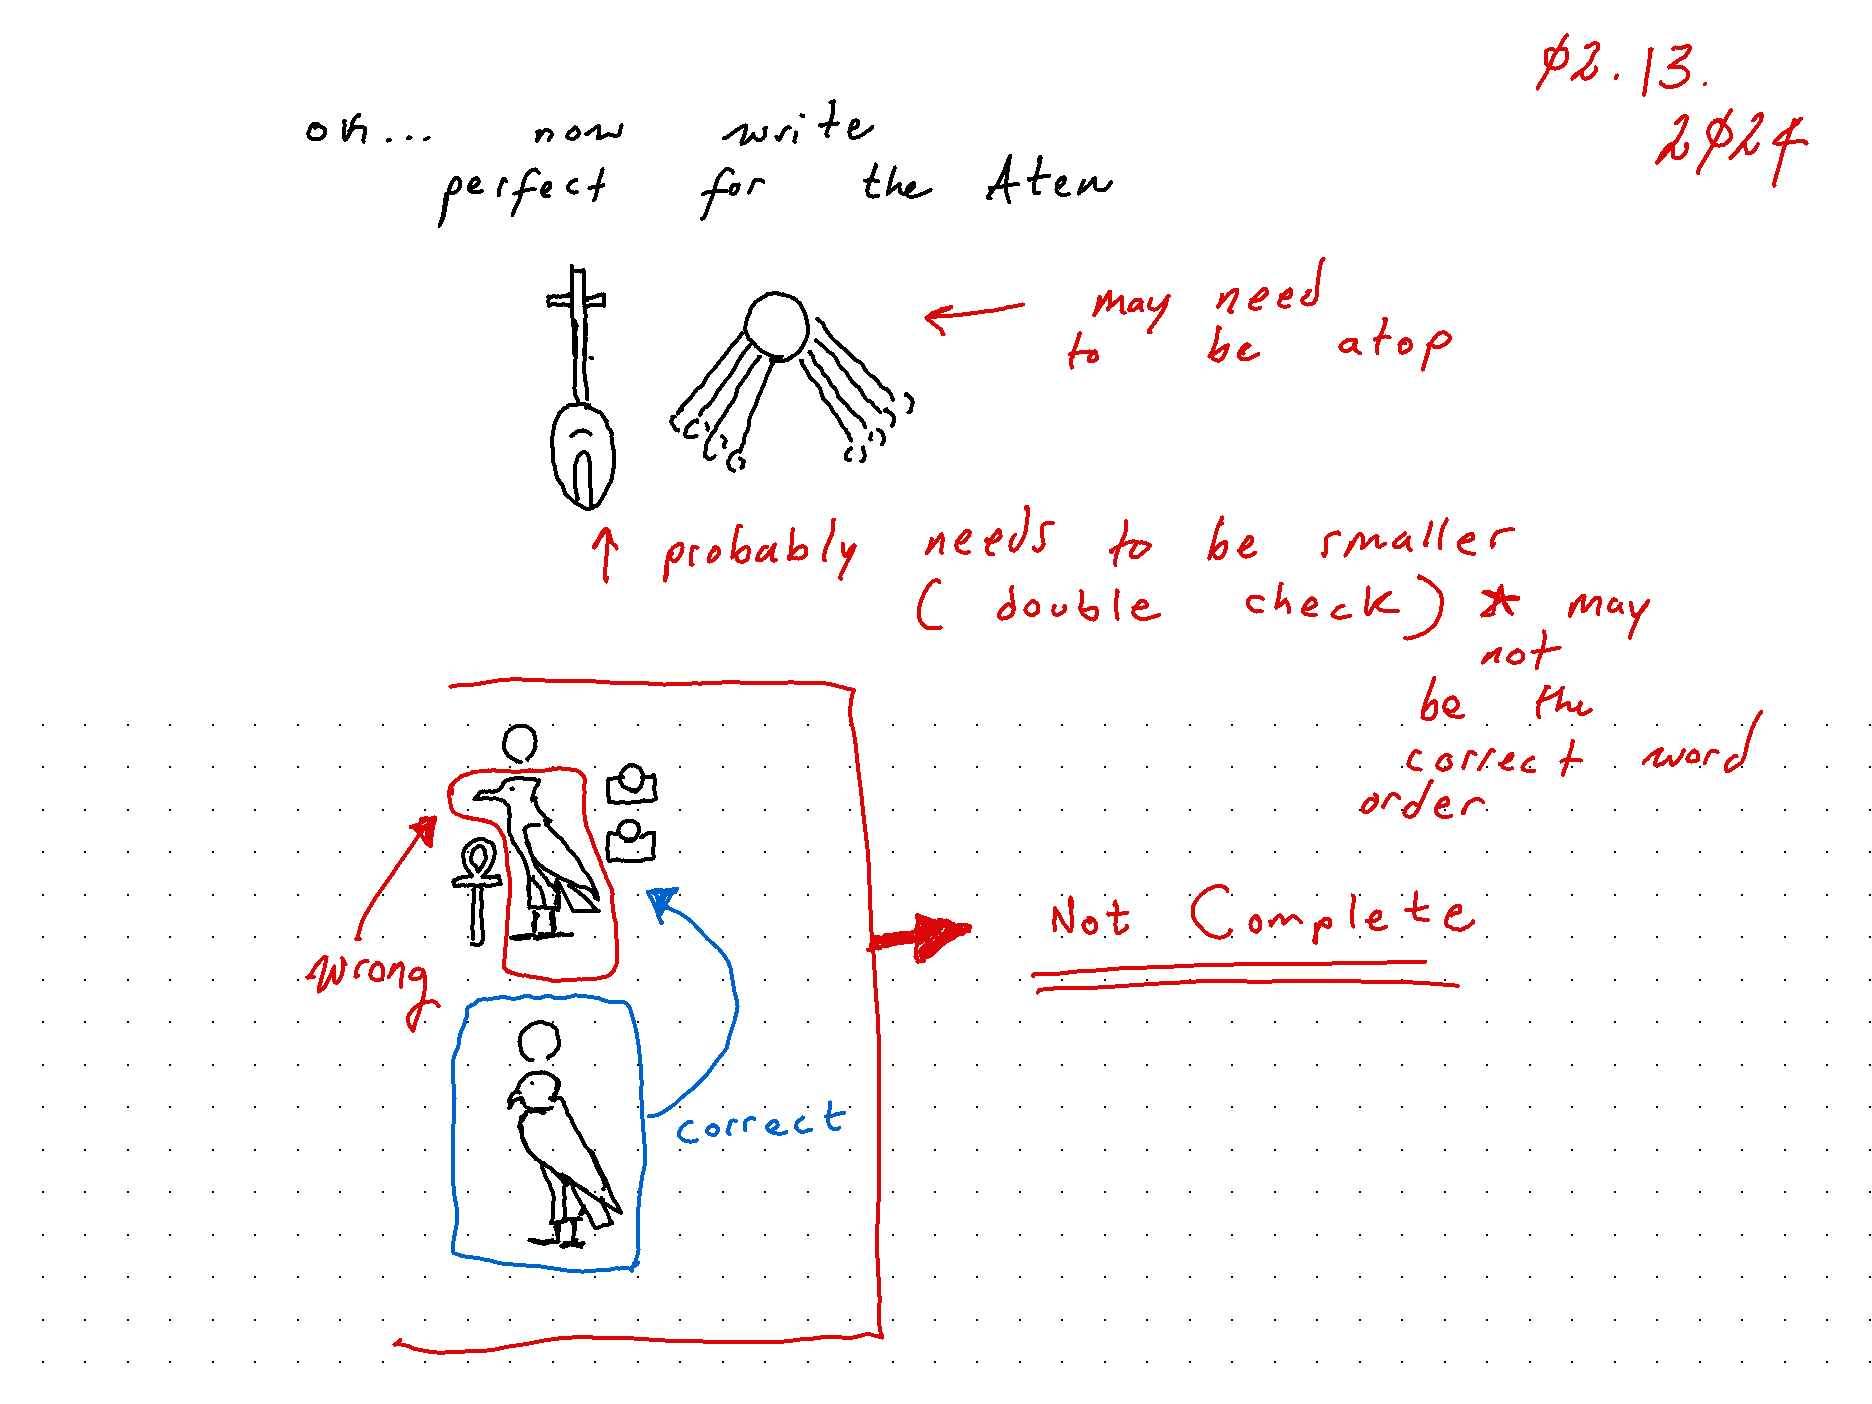 Ø2.13.
2Ø24
ok... now write
perfect for the Aten
may need
to be atop
probably needs to be smaller
(double check) * may
not
be the
correct word
order
wrong
Not Complete
correct